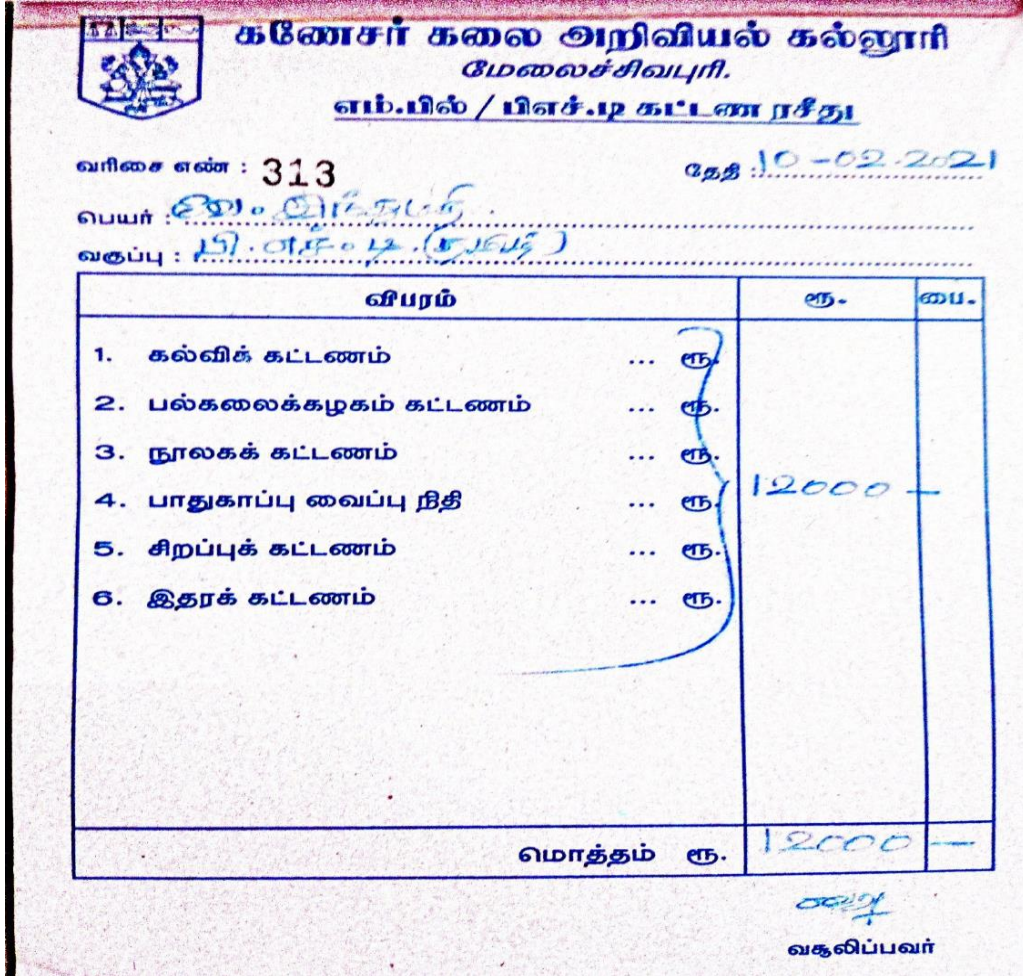 கணேசர் கலை அறிவியல் கல்லூரி
மேலைச்சிவபுரி.
எம்.பில் / பிஎச்.டி கட்டண ரசீது
வரிசை எண் : 313 தேதி : 10-02-2021
பெயர் : இந்துமதி
வகுப்பு : பி.எச்.டி. (தமிழ்)
விபரம் ரூ. பை.
1. கல்விக் கட்டணம் ... ரூ.
2. பல்கலைக்கழகம் கட்டணம் ... ரூ.
3. நூலகக் கட்டணம் ... ரூ.
4. பாதுகாப்பு வைப்பு நிதி ... ரூ. 12000 —
5. சிறப்புக் கட்டணம் ... ரூ.
6. இதரக் கட்டணம் ... ரூ.
மொத்தம் ரூ. 12000 —
வசூலிப்பவர்